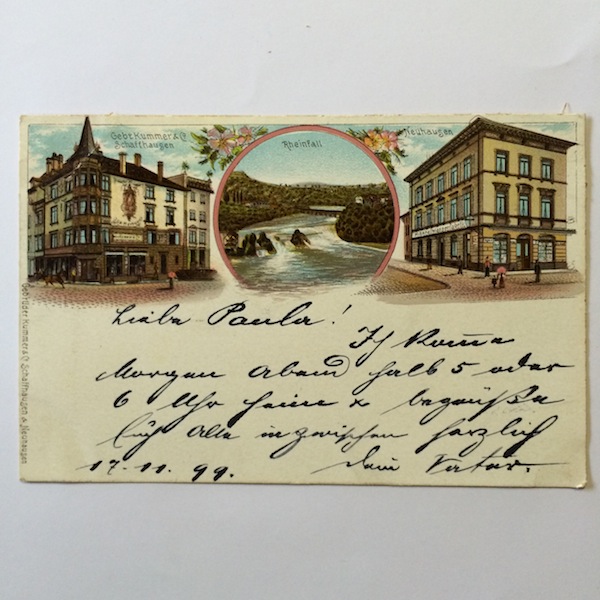 Gebr. Kummer & Cº
Schaffhausen
Rheinfall
Neuhausen
Liebe Paula!
Ich kom̄e
Morgen Abend halb 5 oder
6 Uhr heim & begrüße
Euch Alle inzwischen herzlich
17.11.99. Dein Vater.
Gebrüder Kummer & Cº Schaffhausen & Neuhausen